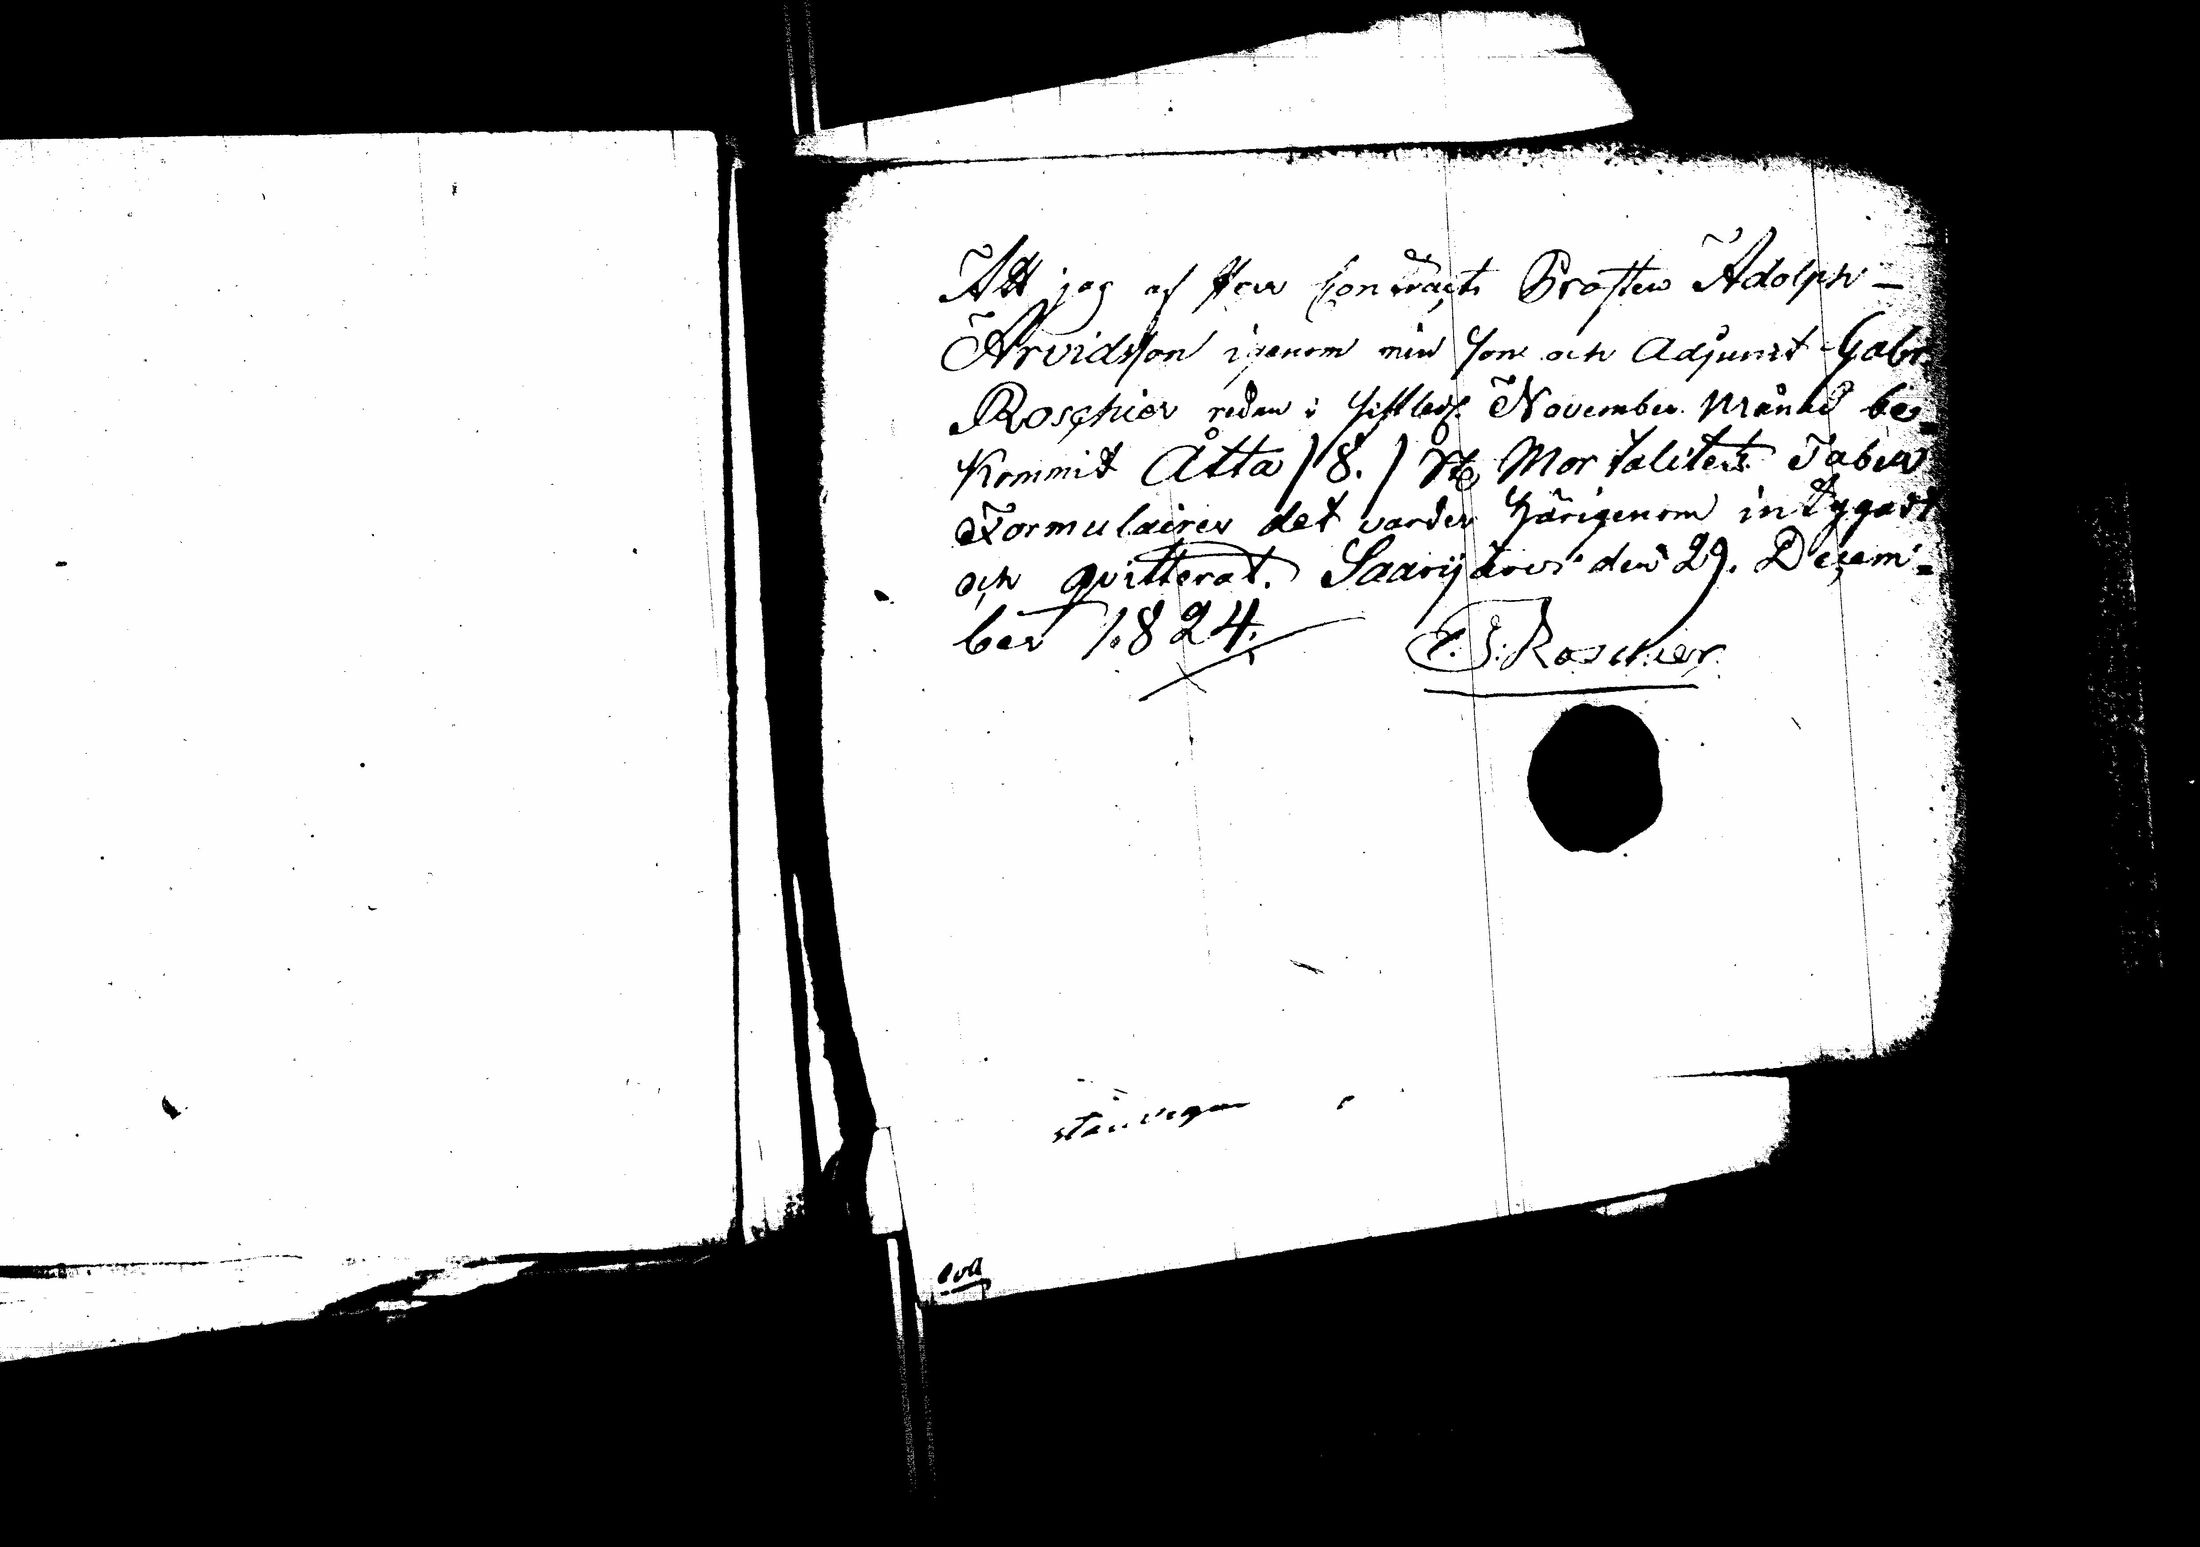 Att jag af Herr Contracts Prosten Adolph –
Arvidsson igenom min Son och Adjunct Gabr.
Roschier redan i sistled. November Månad be=
kommit Åtta /8./ St. Mortalitets Tabell
Formulairer det varder härigenom intygadt
och qvitterat. Saarijärvi den 29. Decem=
ber 1824.
Roschier